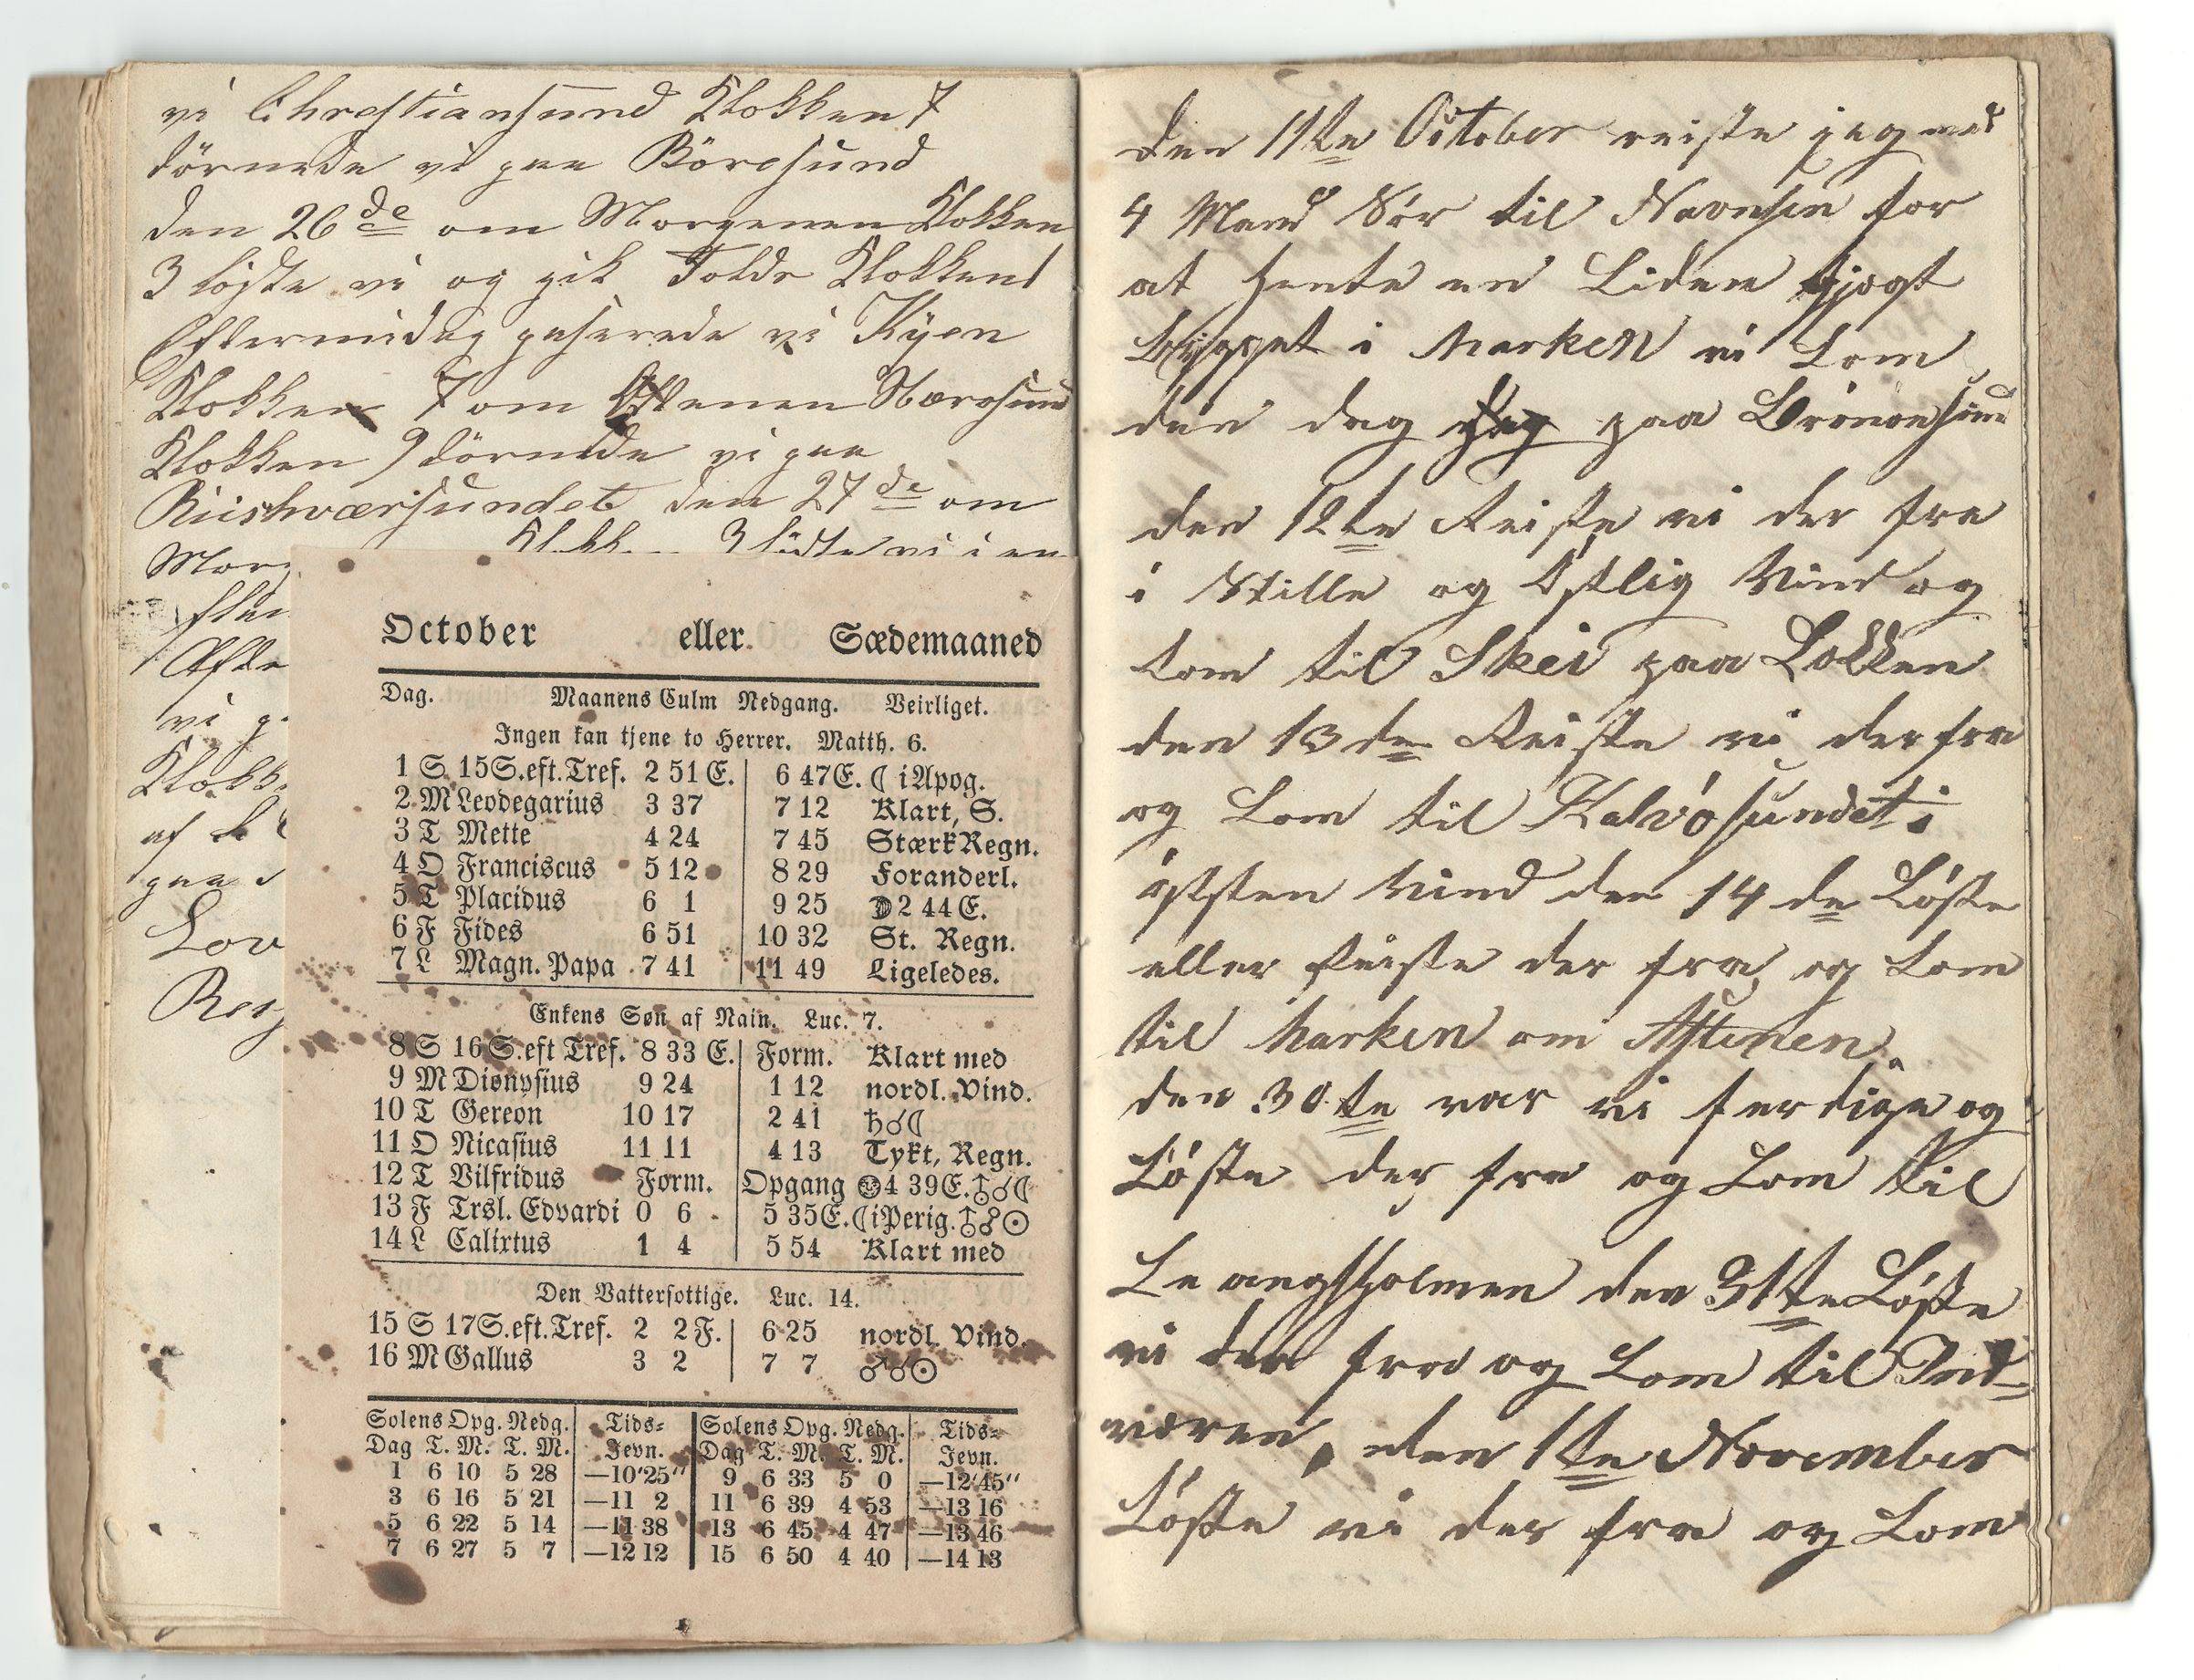 vi Chrestiansund Klokken 7
törnede vi paa Böresund
den 26de om Morgenen Klokken
3 lösste vi og gik Folde Klokken 1
Eftermidag paserede vi Kyen
Klokken 7 om Aftenen Nærøsund
Klokken 9 törnede vi paa
Riishværsundet den 27de om
Morg Klokken 3 lödte vi i en
Efte
vi p
Klokk
af
paa
Lov
October eller Sædemaaned
Dag. Maanens Culm Nedgang. Veirliget.
Ingen kan tjene to Herrer. Matth. 6.
1 S 15S.eft.Tref. 2 51 E. 6 47E. ☾ i Apog.
2 M Leodegarius 3 37 7 12 Klart, S.
3 T Mette 4 24 7 45 Stærk Regn.
4 O Franciscus 5 12 8 29 Foranderl.
5 T Placidus 6 1 9 25 ☽ 2 44 E.
6 F Fides 6 51 10 32 St. Regn.
7 L Magn. Papa 7 41 11 49 Ligeledes.
Enkens Søn af Nain. Luc. 7.
8 S 16 S.eft Tref. 8 33 E. Form. Klart med
9 M Dionysius 9 24 1 12 nordl. Vind.
10 T Gereon 10 17 2 41 ♄☌☾
11 O Nicasius 11 11 4 13 Tykt, Regn.
12 T Vilfridus Form. Opgang 4 39E. ☌☾
13 F Trsl. Edvardi 0 6 5 35E. ☾ i Perig. ☍☉
14 L Calixtus 1 4 5 54 Klart med
Den Vattersottige. Luc. 14.
15 S 17S.eft.Tref. 2 2F. 6 25 nordl. Vind.
16 M Gallus 3 2 7 7 ♂☌☉
Solens Opg. Nedg. Tids= Solens Opg. Nedg. Tids=
Dag T. M. T. M. Jevn. Dag T. M. T. M. Jevn.
1 6 10 5 28 —10'25" 9 6 33 5 0 —12'45"
3 6 16 5 21 —11 2 11 6 39 4 53 —13 16
5 6 22 5 14 —11 38 13 6 45 4 47 —13 46
7 6 27 5 7 —12 12 15 6 50 4 40 —14 13
den 11te October reiste jeg med
4 Mand Sør til Navnsen for
at hente en Liden Sjøgt
bygget i Marken vi kom
den dag paa Brönøesund
den 12te Reiste vi der fra
i Stille og Østlig Vind og
kom til Skei paa Løkken
den 13de Reiste vi der fra
og kom til Kalvösundet i
østen Vind den 14de Løste
eller Reiste der fra og kom
til Marken om Aftenen.
den 30te var vi ferdige og
Løste der fra og kom til
Leangsholmen den 31te Løste
vi der fra og kom til Ind-
væren, den 1te November
Løste vi der fra og kom